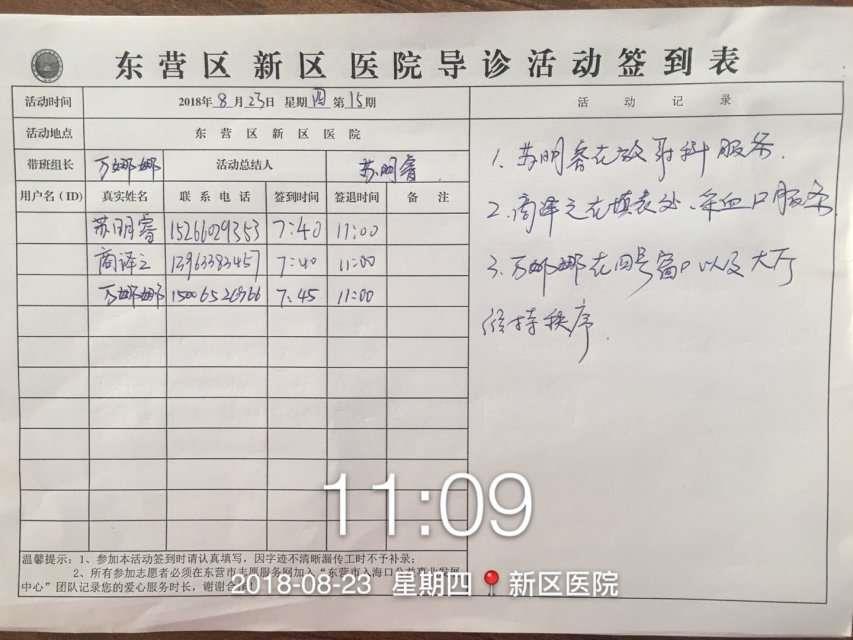 东营区新区医院导诊活动签到表
活动时间 2018年8月23日 星期四 第15期 活动记录
活动地点 东营区新区医院
带班组长 万娜娜 活动总结人 苏明睿
用户名(ID) 真实姓名 联系电话 签到时间 签退时间 备注
苏明睿 15266029353 7:40 11:00
商译之 7:40 11:00
万娜娜 7:45 11:00
1. 苏明睿在放射科服务.
2. 商译之在填表处、采血口服务
3. 万娜娜在四号窗口以及大厅
维持秩序.
温馨提示:1、参加本活动签到时请认真填写,因字迹不清晰漏传工时不予补录;
2、所有参加志愿者必须在东营市志愿服务网加入“东营市入海口公益事业发展
中心”团队记录您的爱心服务时长,谢谢合作
11:09
2018-08-23 星期四 新区医院